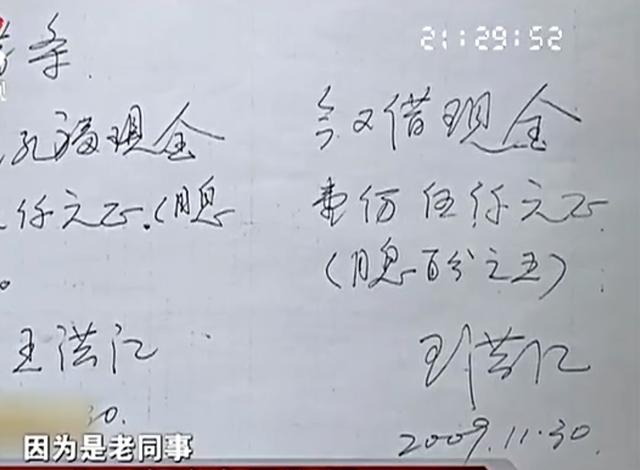 21:29:52
条
孔福现金
仟元正.(月息
王洪江
30.
今又借现金
伍仟元正
(月息百分之五)
王洪江
2009.11.30.
因为是老同事